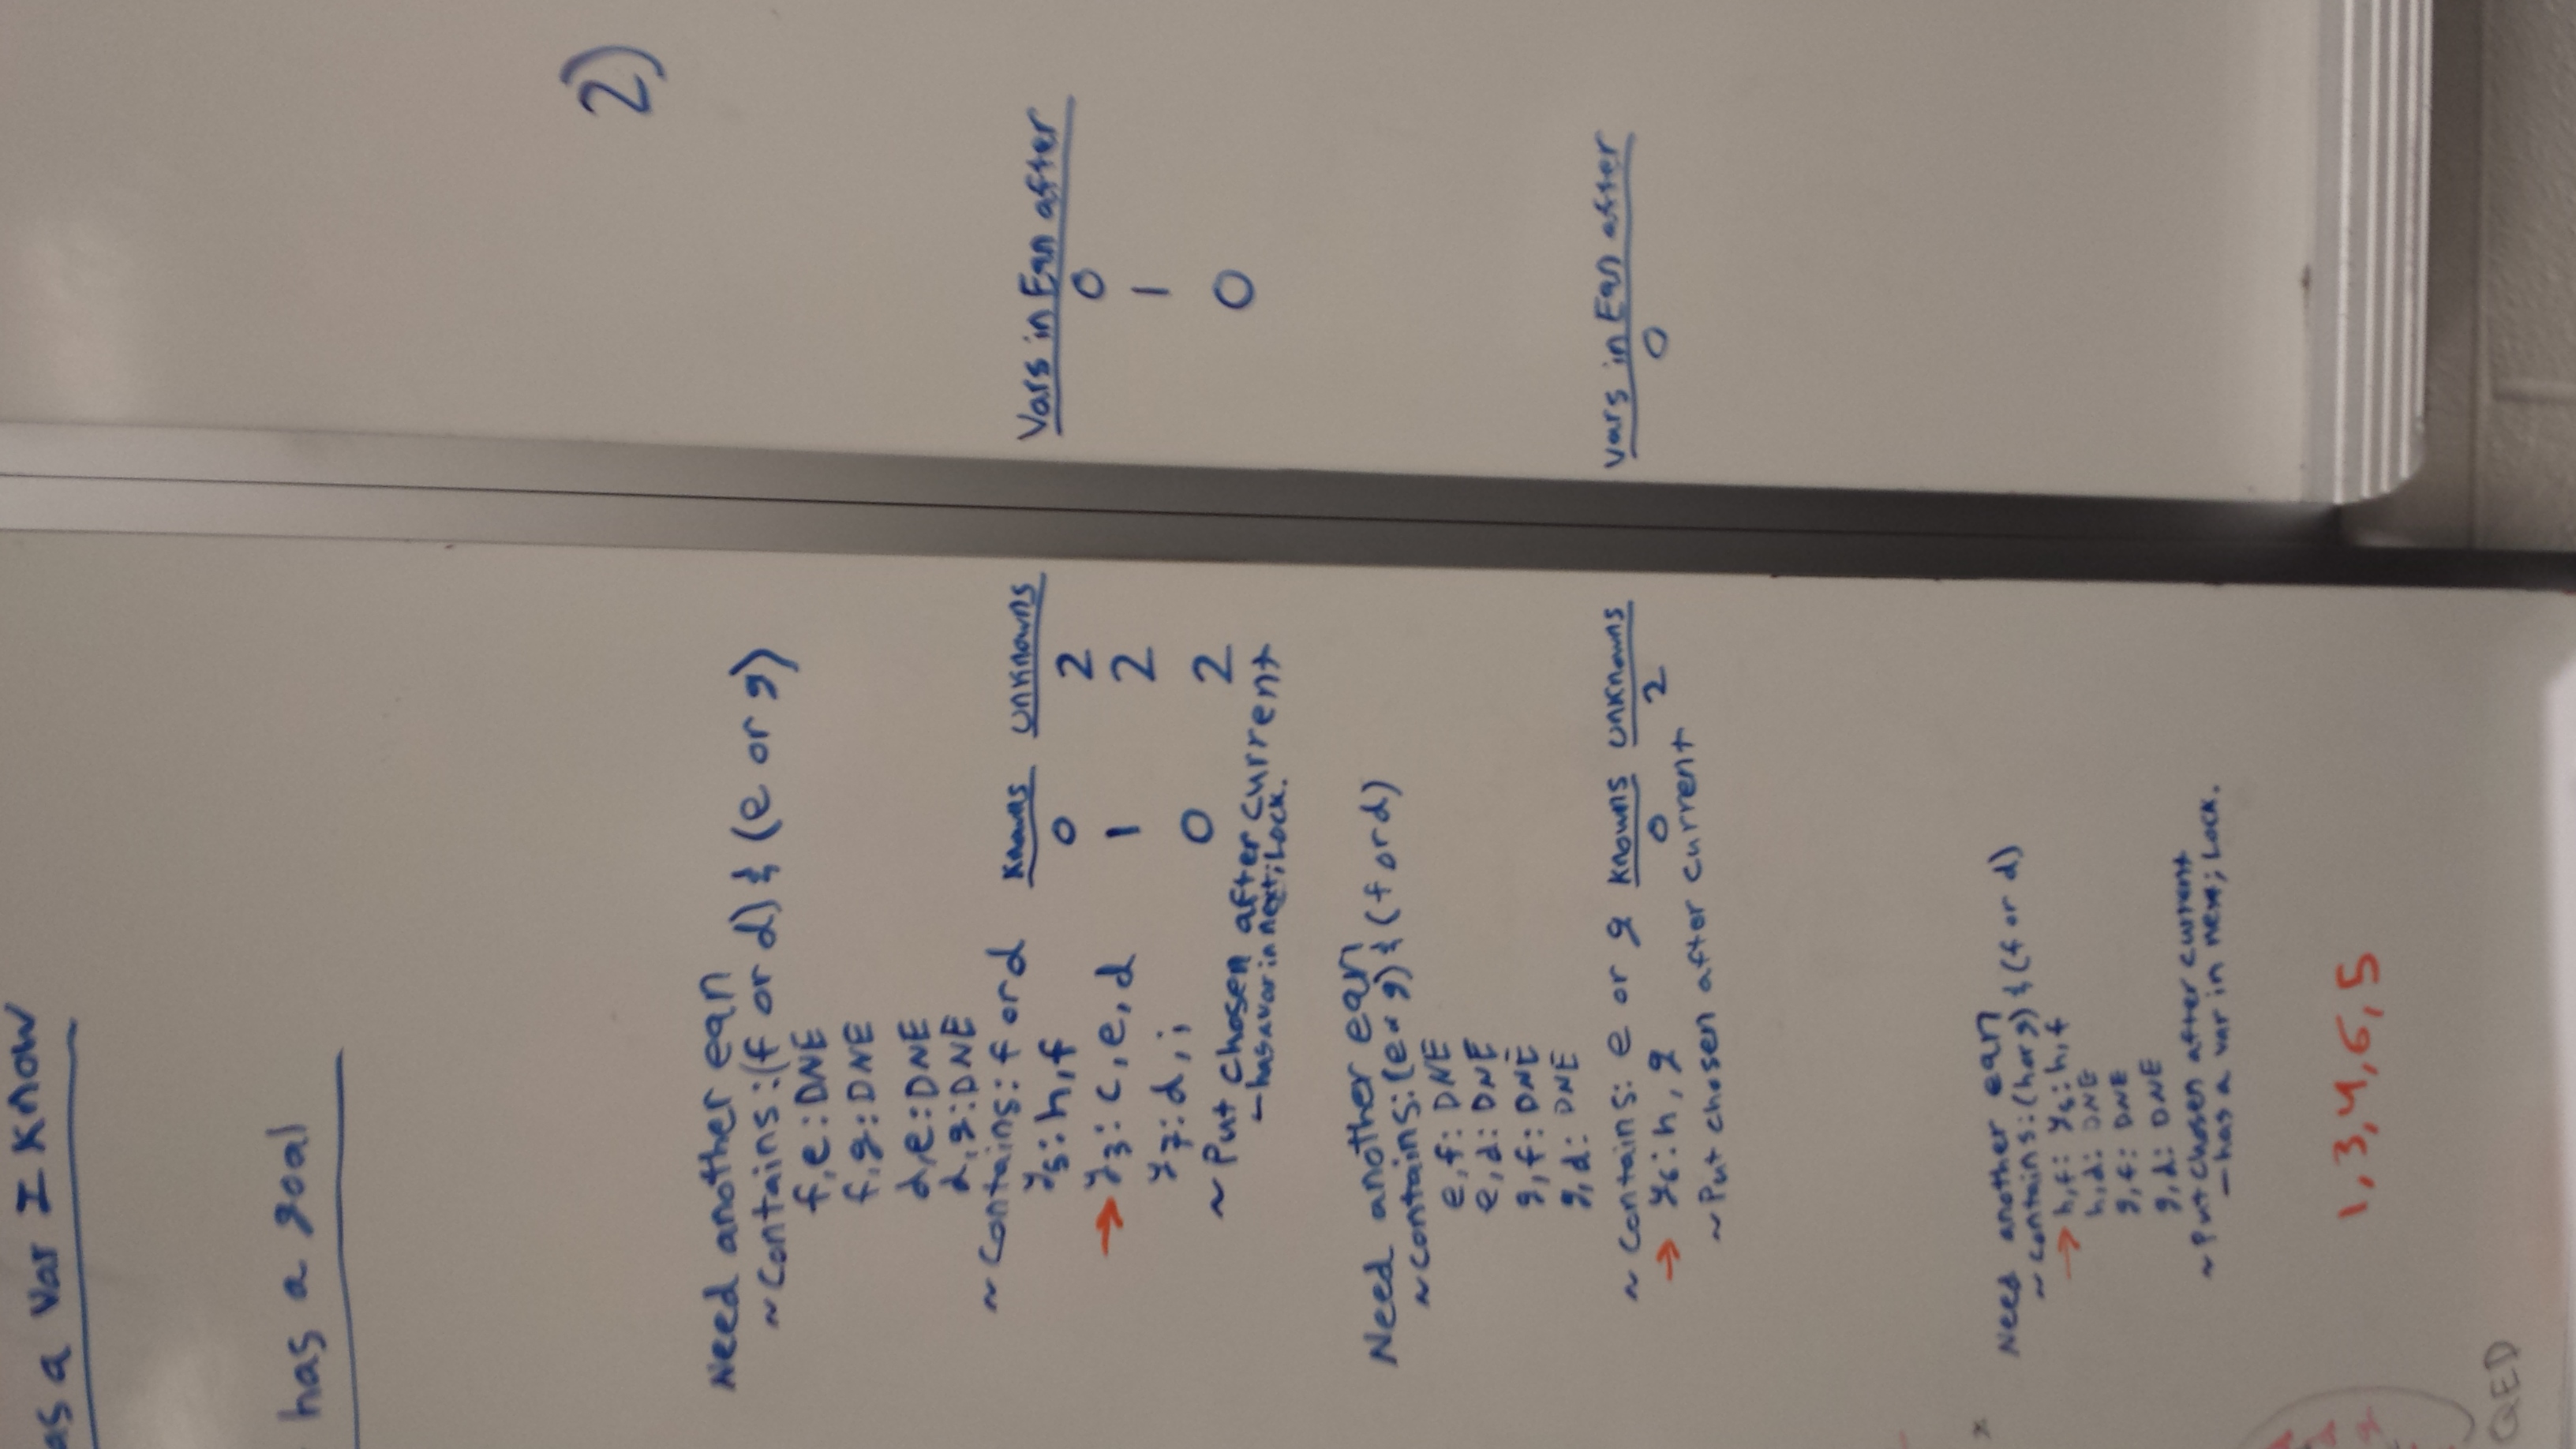 as a Var I Know
has a goal
2)
Need another eqn
~ Contains: (f or d) & (e or g)
f,e: DNE
f,g: DNE
d,e: DNE
d,g: DNE
~ Contains: f or d Knowns Unknowns Vars in Eqn after
y5: h,f 0 2 0
→ y3: c,e,d 1 2 1
y7: d,i 0 2 0
~ Put chosen after current
- has a var in next; Lock.
Need another eqn
~ contains: (e or g) & (f or d)
e,f: DNE
e,d: DNE
g,f: DNE
g,d: DNE
~ Contains: e or g Knowns Unknowns Vars in Eqn after
→ y6: h,g 0 2 0
~ Put chosen after current
Need another eqn
~ contains: (h or g) & (f or d)
→ h,f: y5: h,f
h,d: DNE
g,f: DNE
g,d: DNE
~ Put chosen after current
- has a var in next; Lock.
1,3,4,6,5
QED